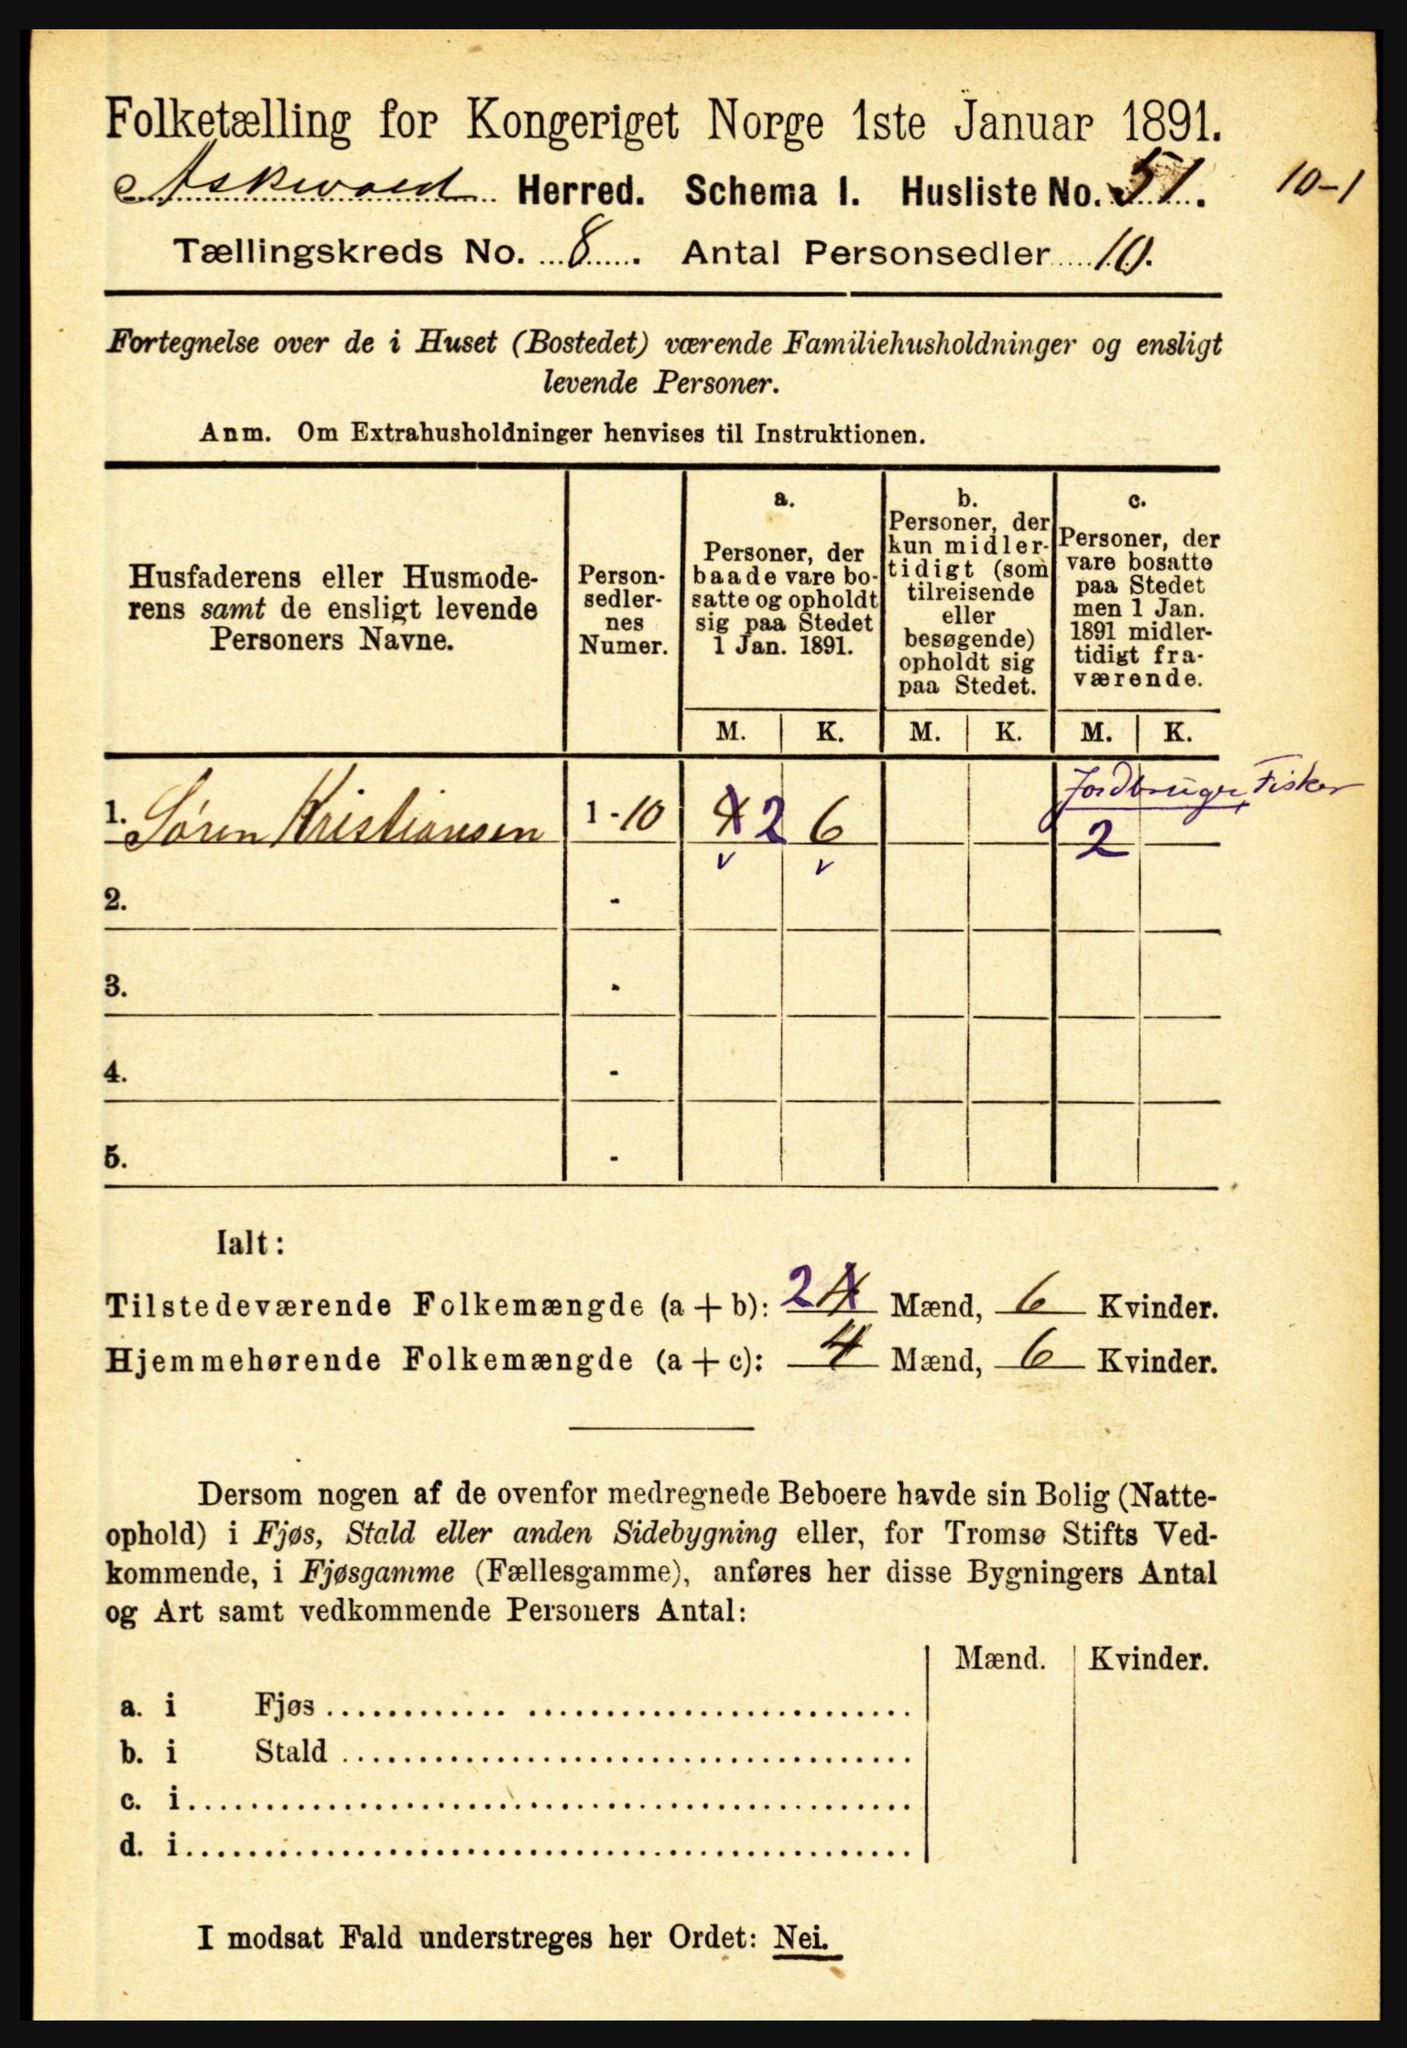 Folketælling for Kongeriget Norge 1ste Januar 1891.
Askevold Herred. Schema I. Husliste No. 51. 10-1
Tællingskreds No. 8. Antal Personsedler 10.
Fortegnelse over de i Huset (Bostedet) værende Familiehusholdninger og ensligt
levende Personer.
Anm. Om Extrahusholdninger henvises til Instruktionen.
Husfaderens eller Husmode-
rens samt de ensligt levende
Personers Navne.
Person-
sedler-
nes
Numer.
a.
Personer, der
baade vare bo-
satte og opholdt
sig paa Stedet
1 Jan. 1891.
b.
Personer, der
kun midler-
tidigt (som
tilreisende
eller
besøgende)
opholdt sig
paa Stedet.
c.
Personer, der
vare bosatte
paa Stedet
men 1 Jan.
1891 midler-
tidigt fra-
værende.
M. K. M. K. M. K.
Jordbruger, Fisker
1. Søren Kristiansen 1-10 4 2 6 2
2. -
3. -
4. -
5. -
Ialt:
Tilstedeværende Folkemængde (a + b): 2 4 Mænd, 6 Kvinder.
Hjemmehørende Folkemængde (a + c): 4 Mænd, 6 Kvinder.
Dersom nogen af de ovenfor medregnede Beboere havde sin Bolig (Natte-
ophold) i Fjøs, Stald eller anden Sidebygning eller, for Tromsø Stifts Ved-
kommende, i Fjøsgamme (Fællesgamme), anføres her disse Bygningers Antal
og Art samt vedkommende Personers Antal:
Mænd. Kvinder.
a. i Fjøs
b. i Stald
c. i
d. i
I modsat Fald understreges her Ordet: Nei.